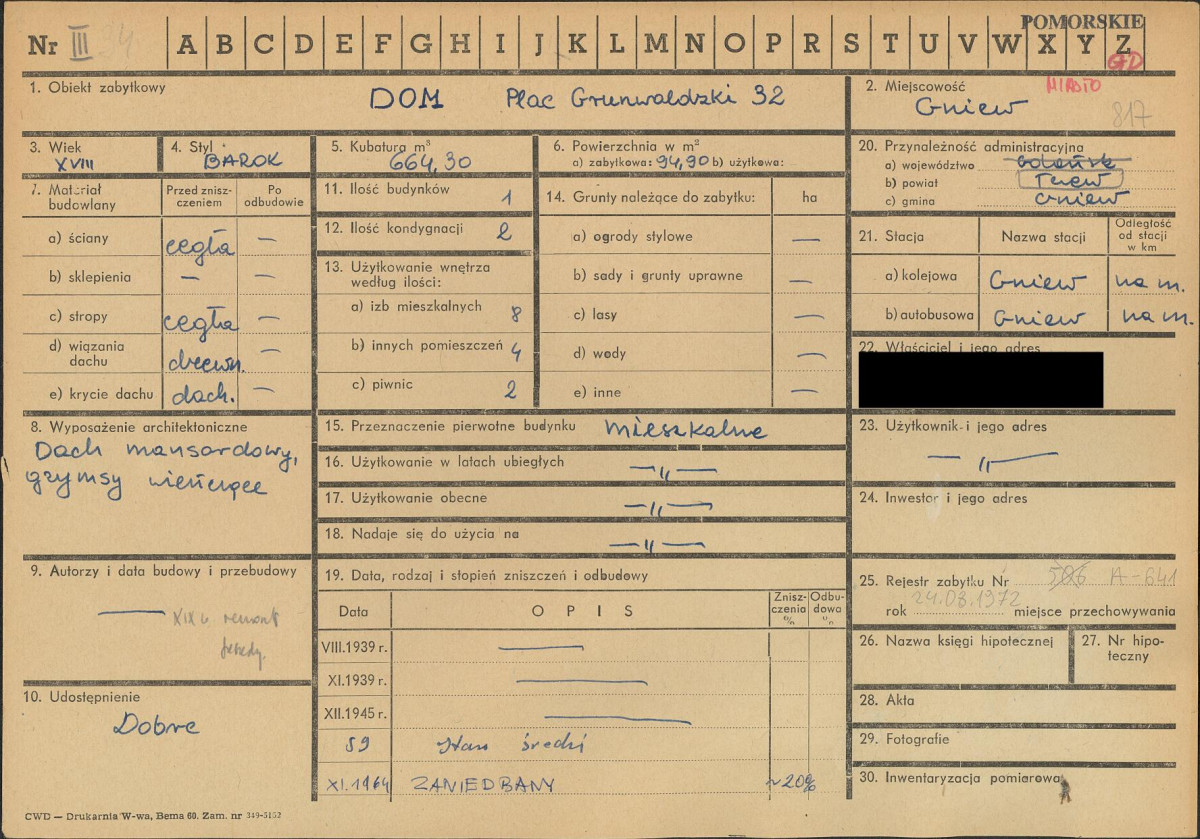 POMORSKIE
Nr III 24 A B C D E F G H I J K L M N O P R S T U V W X Y Z
GD
1. Obiekt zabytkowy
DOM Plac Grunwaldzki 32
2. Miejscowość
MIASTO
Gniew
817
3. Wiek
XVIII
4. Styl
BAROK
5. Kubatura m³
664,30
6. Powierzchnia w m²
a) zabytkowa: 94,90 b) użytkowa:
20. Przynależność administracyjna
a) województwo Gdańsk
b) powiat Tczew
c) gmina Gniew
7. Materiał budowlany
Przed zniszczeniem
Po odbudowie
a) ściany cegła —
b) sklepienia — —
c) stropy cegła —
d) wiązania dachu drewn. —
e) krycie dachu dach. —
11. Ilość budynków 1
12. Ilość kondygnacji 2
13. Użytkowanie wnętrza
według ilości:
a) izb mieszkalnych 8
b) innych pomieszczeń 4
c) piwnic 2
14. Grunty należące do zabytku: ha
a) ogrody stylowe —
b) sady i grunty uprawne —
c) lasy —
d) wody —
e) inne —
21. Stacja
Nazwa stacji
Odległość od stacji w km
a) kolejowa Gniew na m.
b) autobusowa Gniew na m.
22. Właściciel i jego adres
8. Wyposażenie architektoniczne
Dach mansardowy,
gzymsy wieńczące
15. Przeznaczenie pierwotne budynku mieszkalne
16. Użytkowanie w latach ubiegłych —〃—
17. Użytkowanie obecne —〃—
18. Nadaje się do użycia na —〃—
23. Użytkownik i jego adres
—〃—
24. Inwestor i jego adres
9. Autorzy i data budowy i przebudowy
— XIX w. remont
19. Data, rodzaj i stopień zniszczeń i odbudowy
Data
OPIS
Zniszczenia %
Odbudowa %
VIII.1939 r. —
XI.1939 r. —
XII.1945 r. —
59 Stan średni
XI.1964 ZANIEDBANY ~20%
10. Udostępnienie
Dobre
25. Rejestr zabytku Nr 506 A-641
rok 24.08.1972 miejsce przechowywania
26. Nazwa księgi hipotecznej
27. Nr hipoteczny
28. Akta
29. Fotografie
30. Inwentaryzacja pomiarowa
CWD — Drukarnia W-wa, Bema 60. Zam. nr 349-5152